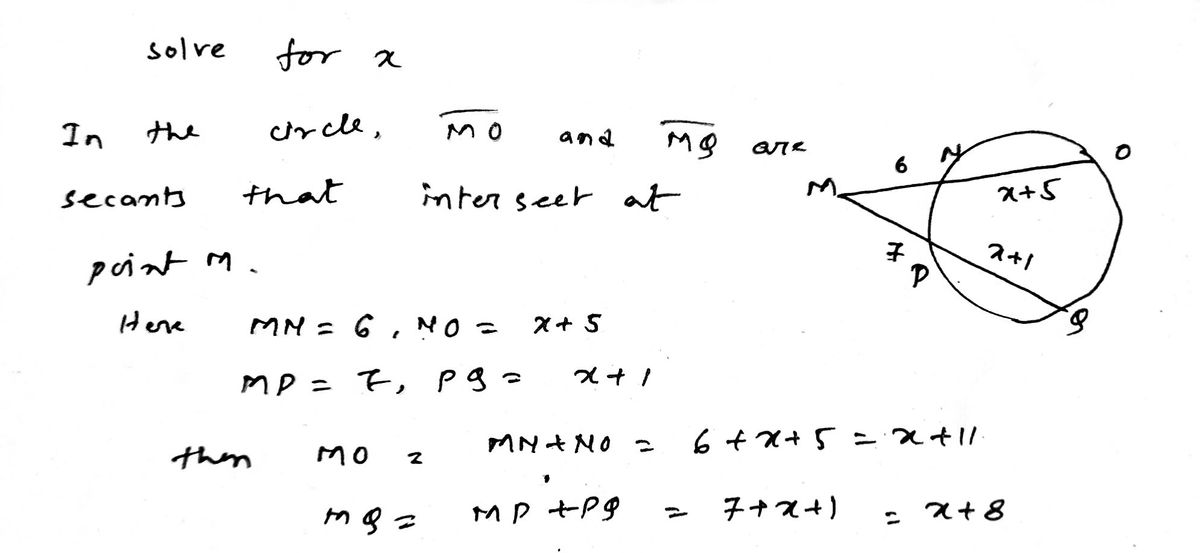 solve for x
In the circle, M̅O̅ and M̅Q̅ are
secants that interseet at
point M.
Here MN = 6, NO = x+5
MP = 7, PQ = x+1
then MO = MN+NO = 6+x+5 = x+11
MQ = MP+PQ = 7+x+1 = x+8
6 N O
M x+5
7 x+1
P
Q